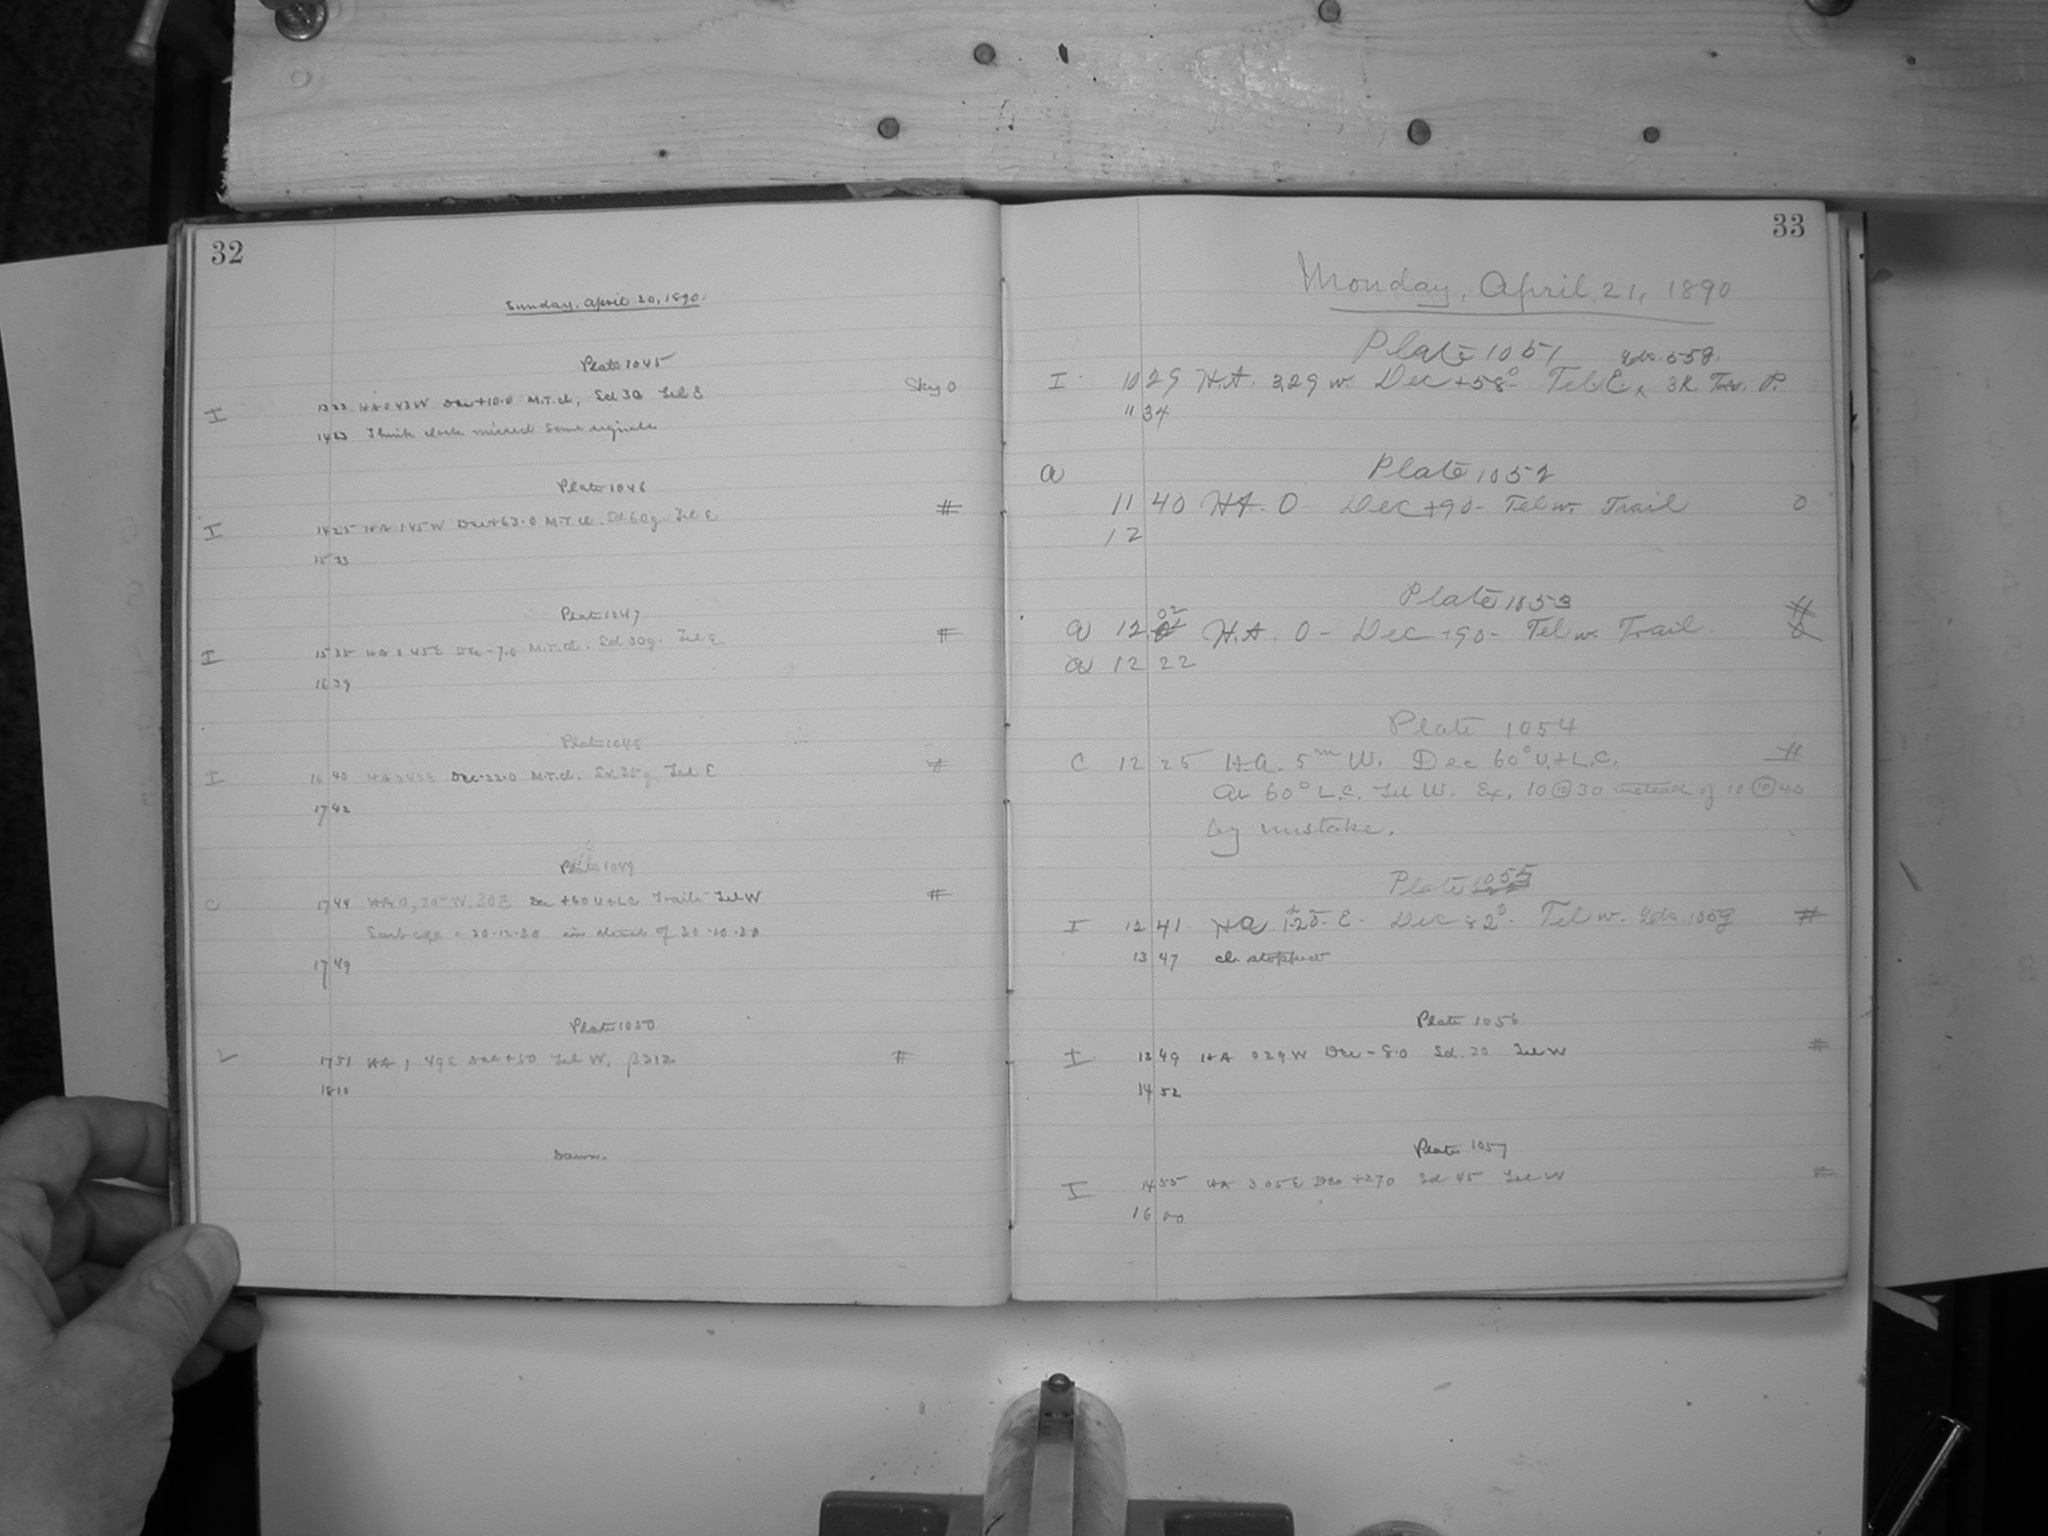 32
Sunday, April 20, 1890.
Plate 1045
I 13 23 HA 0 43 W Dec +10.0 M.T.cl, Sd 30 Tel E Sky 0
14 23 Think clock missed some signals
Plate 1046
I 14 25 HA 1 45 W Dec +63.0 M.T.cl. Sd 60g Tel E #
15 33
Plate 1047
I 15 35 HA 0 45 E Dec -7.0 M.T.cl. Sd 30g. Tel E #
16 39
Plate 1048
I 16 40 HA 0 40 E Dec -22.0 M.T.cl. Sd 35g Tel E #
17 42
Plate 1049
C 17 44 HA 0, 30m W. 30 E Dec +60 U+LC Trails Tel W #
Last exp = 20.12.20 instead of 20.10.20
17 49
Plate 1050
L 17 51 HA 1 49 E Dec +50 Tel W. β312 #
18 10
Dawn.
33
Monday, April, 21, 1890
Plate 1051
I 10 29 H.A. 3 29 w. Dec +58° Tel. E, 3R.
11 34
a Plate 1052
11 40 HA. 0 Dec +90 - Tel w. Trail 0
12
Plate 1053 #
a 12 02 H.A. 0 - Dec +90 - Tel w. Trail.
a 12 22
Plate 1054
C 12 25 H.A. 5m W. Dec 60° U.+L.C. #
At 60° L.C. Tel W. Ex. 10 (10) 30 instead of 10 (10) 40
by mistake.
Plate 1055
I 12 41 HA 1 20 E - Dec 82° - Tel w. #
13 47 cl. stopped
Plate 1056
I 13 49 HA 0 29 W Dec -8.0 Sd. 30 Tel W #
14 52
Plate 1057
I 14 55 HA 3 05 E Dec +27.0 Sd 45 Tel W #
16 00